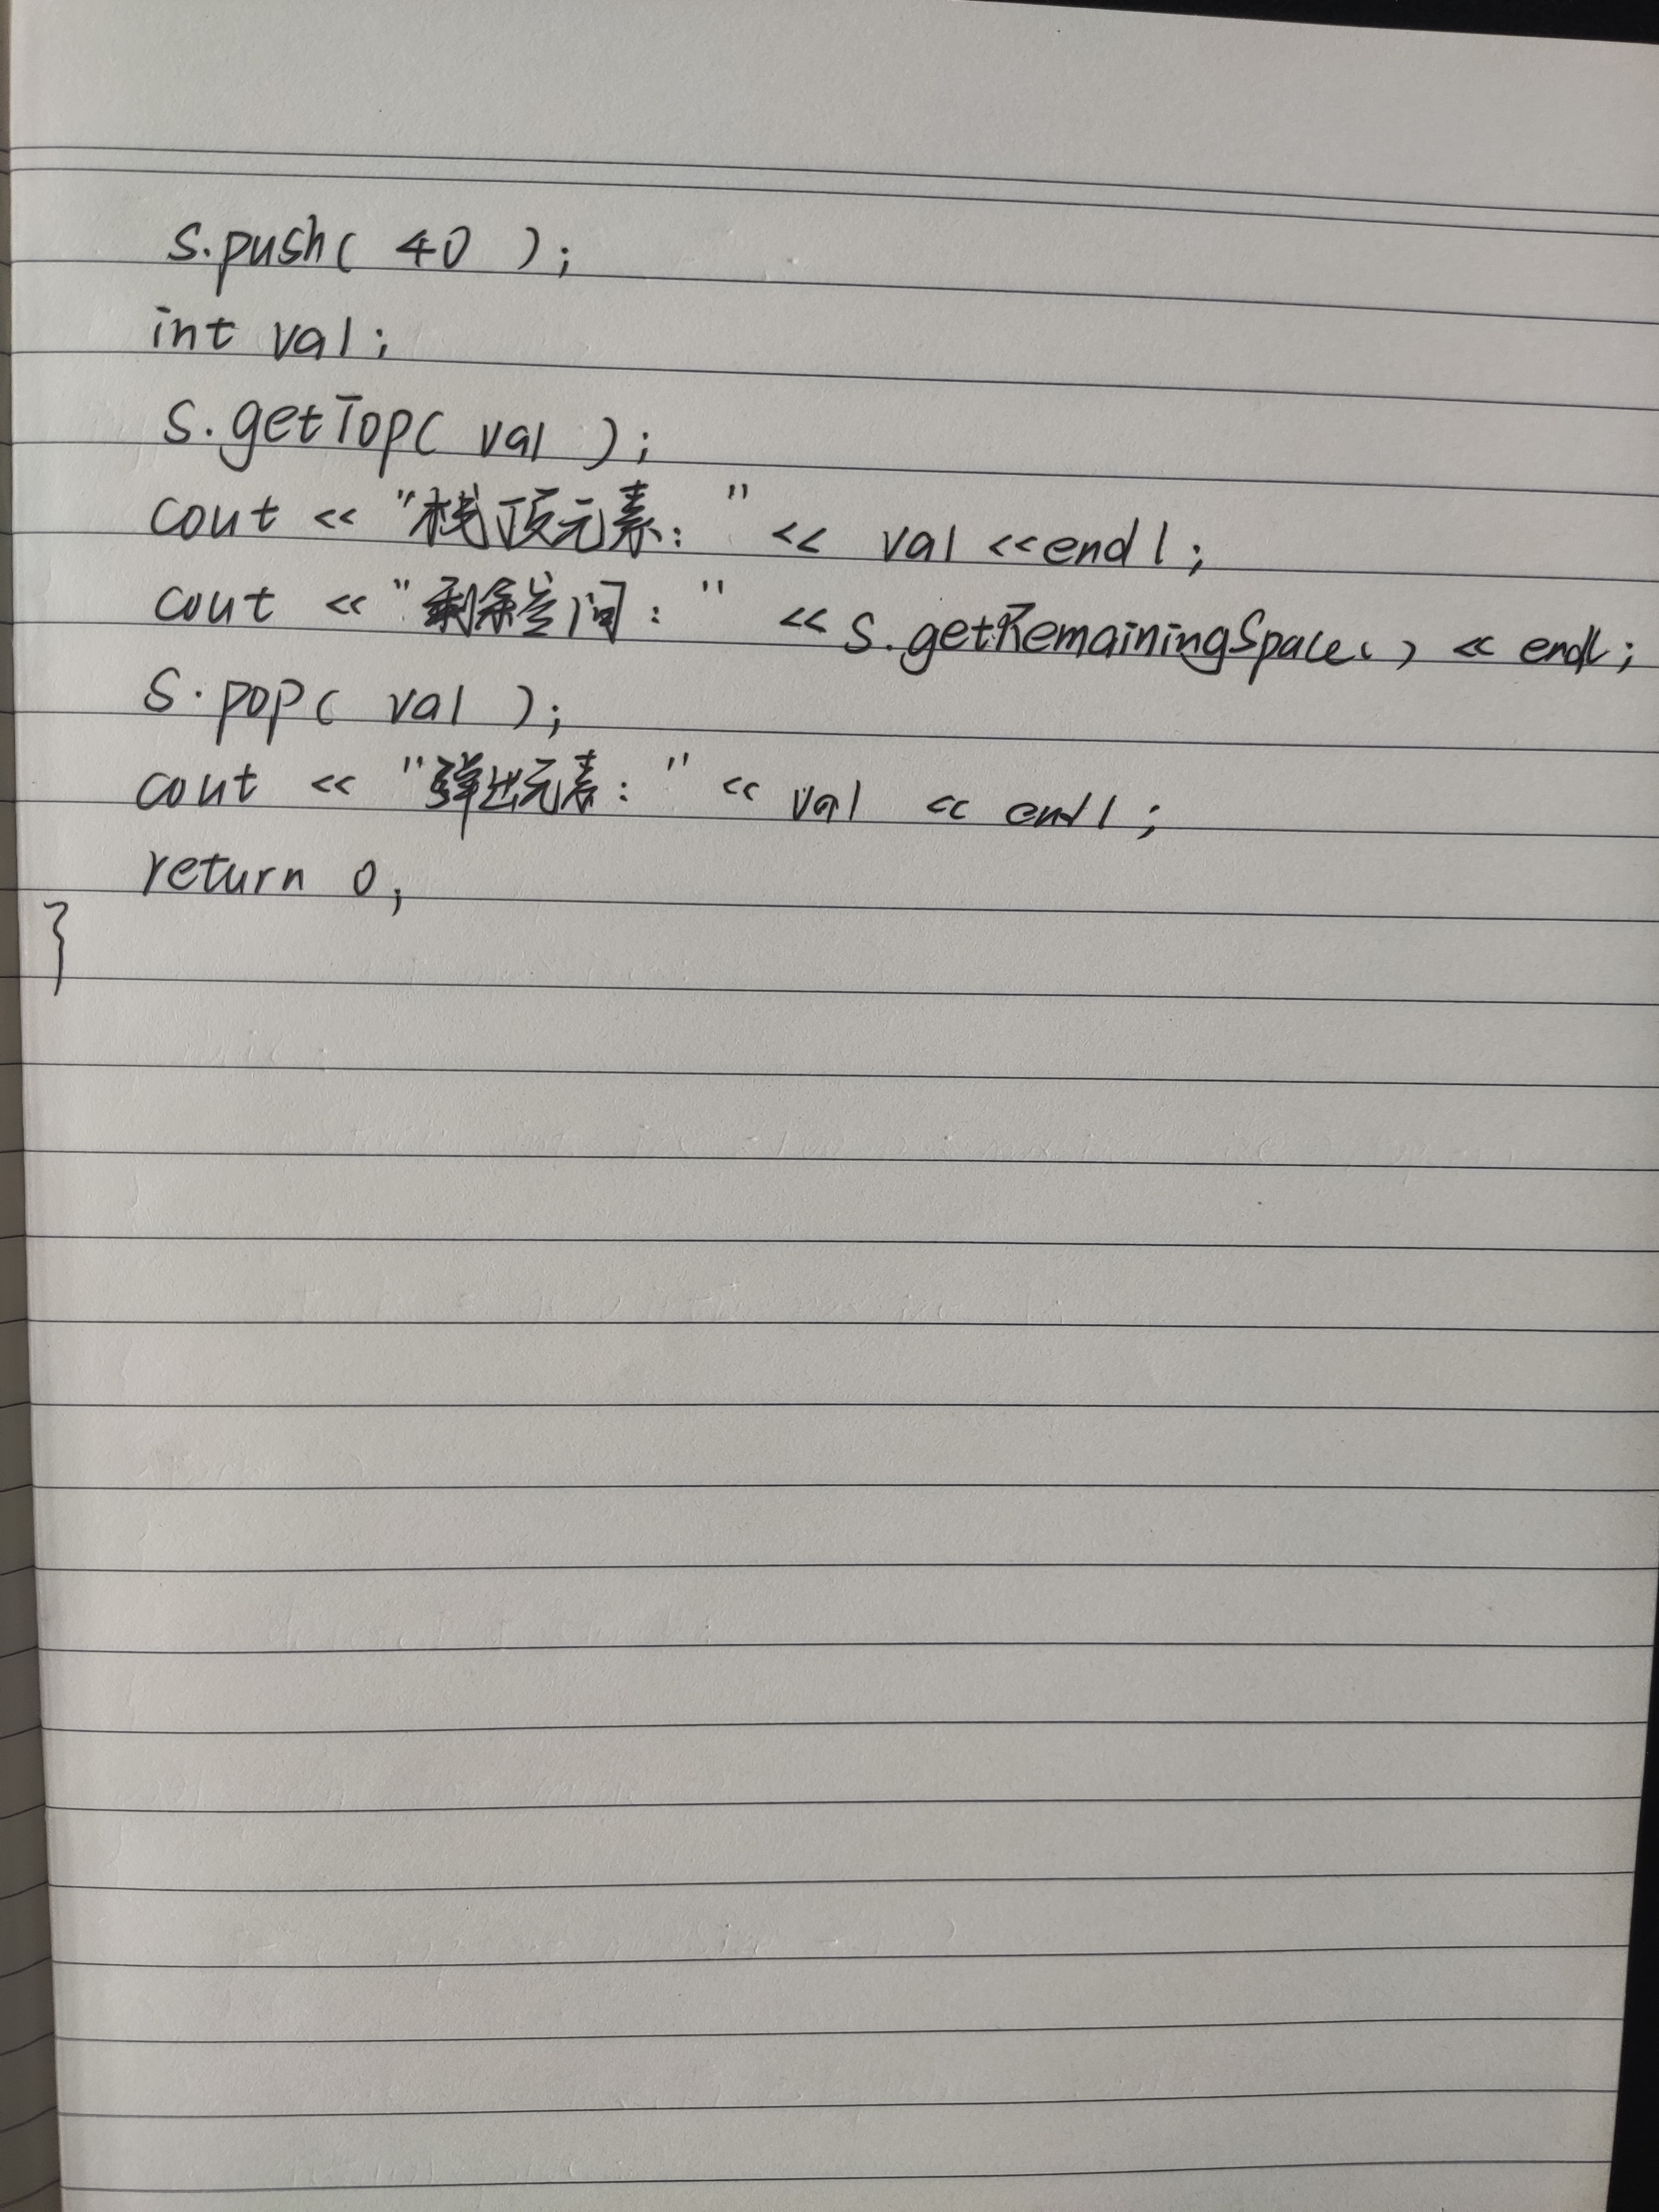 s.push( 40 );
int val;
s.getTop( val );
cout << "栈顶元素：" << val <<endl;
cout << "剩余空间：" << s.getRemainingSpace() << endl;
s.pop( val );
cout << "弹出元素：" << val << endl;
return 0;
}